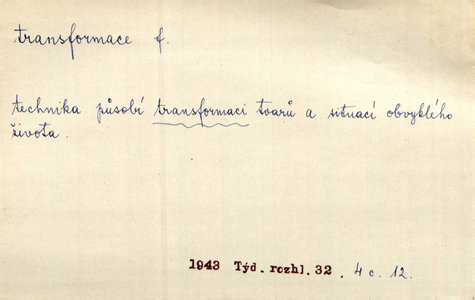 transformace f.
technika působí transformaci tvarů a situací obvyklého
života.
1943 Týd. rozhl. 32. 4 c. 12.